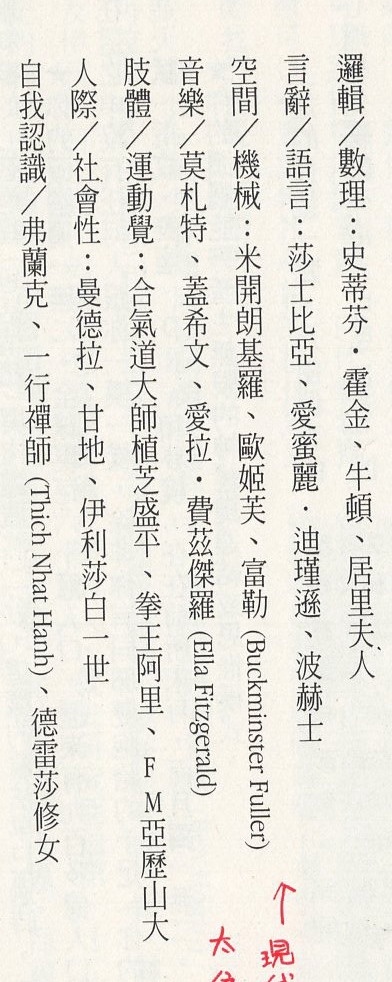 邏輯／數理：史蒂芬・霍金、牛頓、居里夫人
言辭／語言：莎士比亞、愛蜜麗・迪瑾遜、波赫士
空間／機械：米開朗基羅、歐姬芙、富勒 (Buckminster Fuller)
音樂／莫札特、蓋希文、愛拉・費茲傑羅 (Ella Fitzgerald)
肢體／運動覺：合氣道大師植芝盛平、拳王阿里、FM亞歷山大
人際／社會性：曼德拉、甘地、伊利莎白一世
自我認識／弗蘭克、一行禪師 (Thich Nhat Hanh)、德雷莎修女
↑現
太